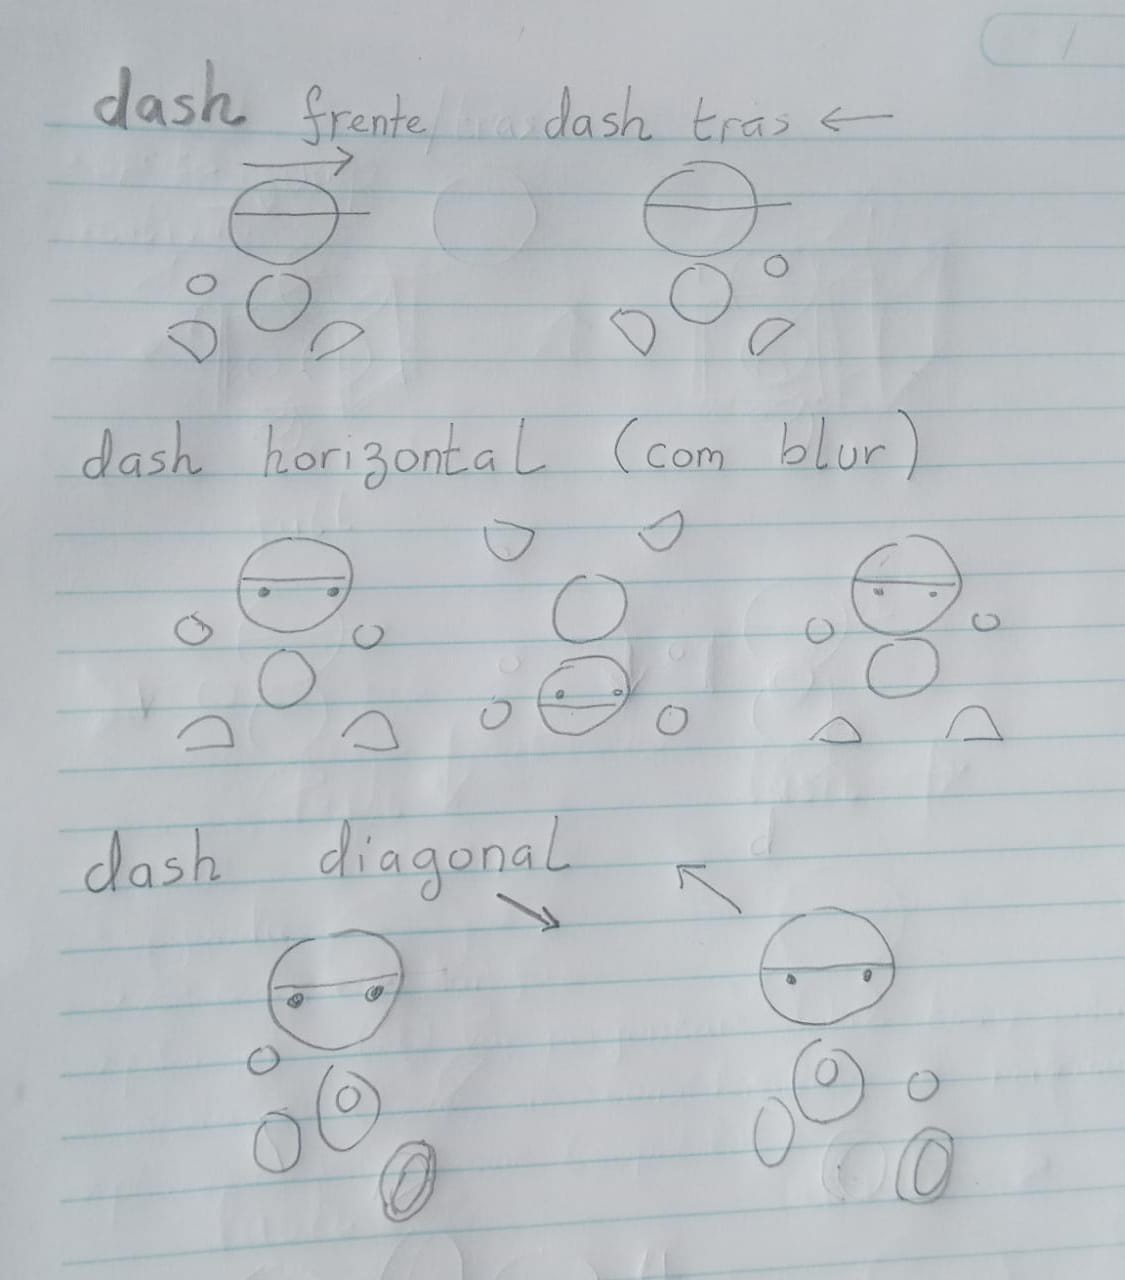 dash frente dash trás ←
→
dash horizontal (com blur)
dash diagonal